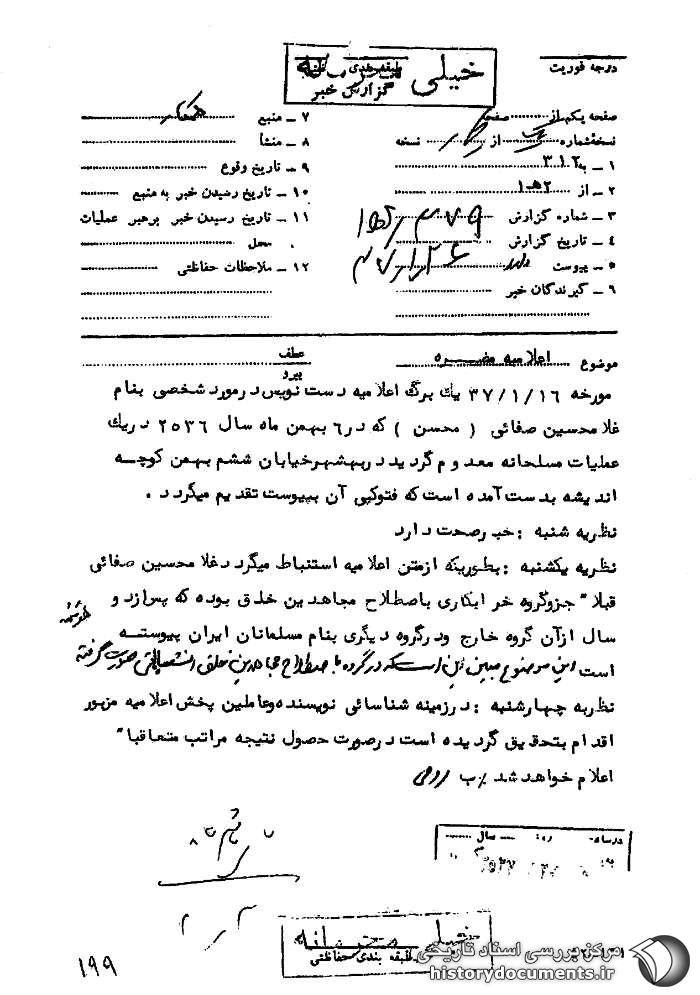 درجه فوریت
خیلی محرمانه
طبقه بندی حفاظتی
گزارش خبر
صفحه یکم از صفحه
نسخه شماره از نسخه
۱ ـ به ۳۱۲
۲ ـ از ۲هـ۱
۳ ـ شماره گزارش
۴ ـ تاریخ گزارش
۵ ـ پیوست دارد
۶ ـ گیرندگان خبر
۷ ـ منبع همکار
۸ ـ منشأ
۹ ـ تاریخ وقوع
۱۰ ـ تاریخ رسیدن خبر به منبع
۱۱ ـ تاریخ رسیدن خبر برهبر عملیات
محل
۱۲ ـ ملاحظات حفاظتی
موضوع اعلامیه مضره
عطف
پیرو
مورخه ۳۷/۱/۱۶ یك برگ اعلامیه دست نویس در مورد شخصی بنام
غلامحسین صفائی ( محسن ) که در ۶ بهمن ماه سال ۲۵۳۶ در یك
عملیات مسلحانه معدوم گردید در بهشهر خیابان ششم بهمن کوچه
اندیشه بدست آمده است که فتوکپی آن بپیوست تقدیم میگردد .
نظریه شنبه : خبر صحت دارد
نظریه یکشنبه : بطوریکه از متن اعلامیه استنباط میگردد غلامحسین صفائی
قبلا" جزو گروه خرابکاری باصطلاح مجاهدین خلق بوده که پس از دو
سال از آن گروه خارج و در گروه دیگری بنام مسلمانان ایران پیوسته
است این موضوع مبین این است که در گروه باصطلاح مجاهدین خلق انشعاباتی صورت گرفته
نظریه چهارشنبه : در زمینه شناسائی نویسنده و عاملین پخش اعلامیه مزبور
اقدام بتحقیق گردیده است در صورت حصول نتیجه مراتب متعاقبا"
اعلام خواهد شد
در ساعت روز سال
خیلی محرمانه
طبقه بندی حفاظتی
۱۹۹
مرکز بررسی اسناد تاریخی
historydocuments.ir